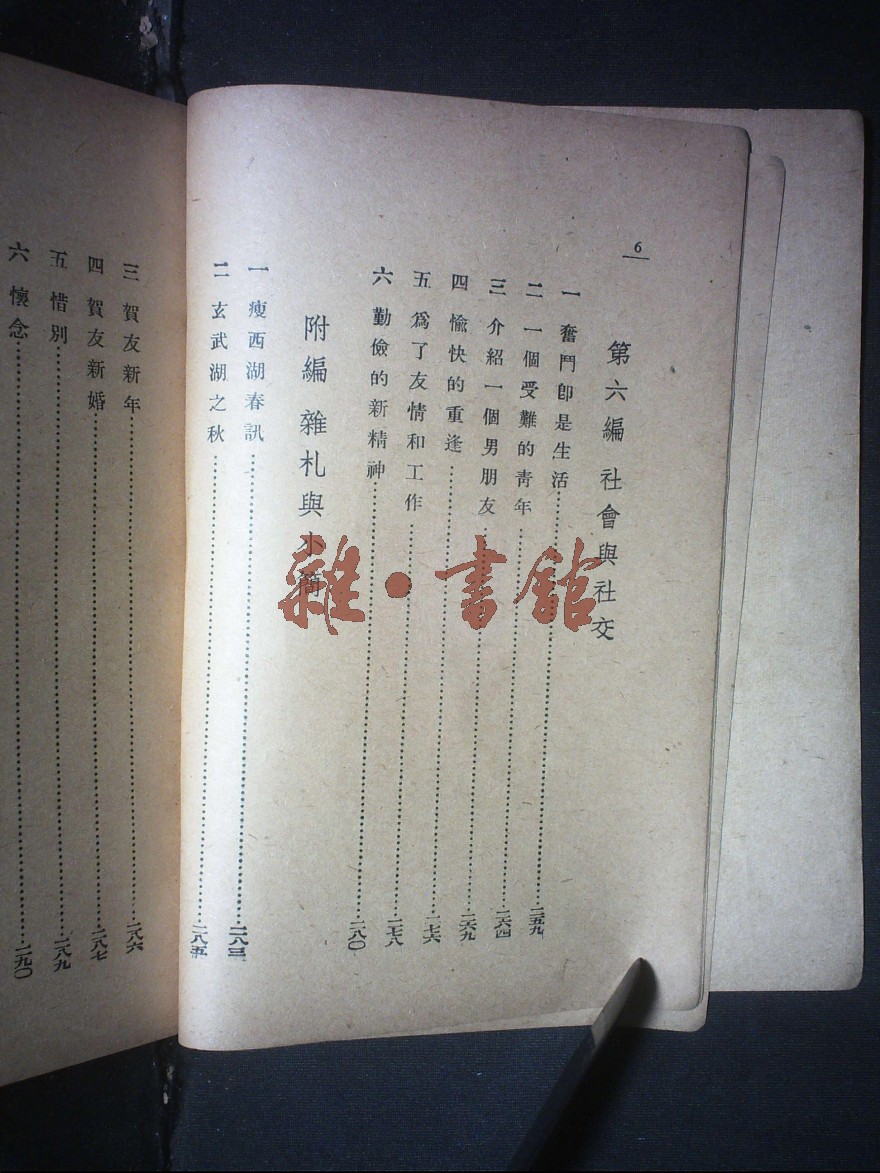 6
第六編 社會與社交
一 奮鬥卽是生活……二五九
二 一個受難的青年……二六四
三 介紹一個男朋友……二六九
四 愉快的重逢……二七六
五 爲了友情和工作……二七八
六 勤儉的新精神……二八〇
附編 雜札與小簡
一 瘦西湖春訊……二八三
二 玄武湖之秋……二八五
三 賀友新年……二八六
四 賀友新婚……二八七
五 惜別……二八九
六 懷念……二九〇
雜·書館